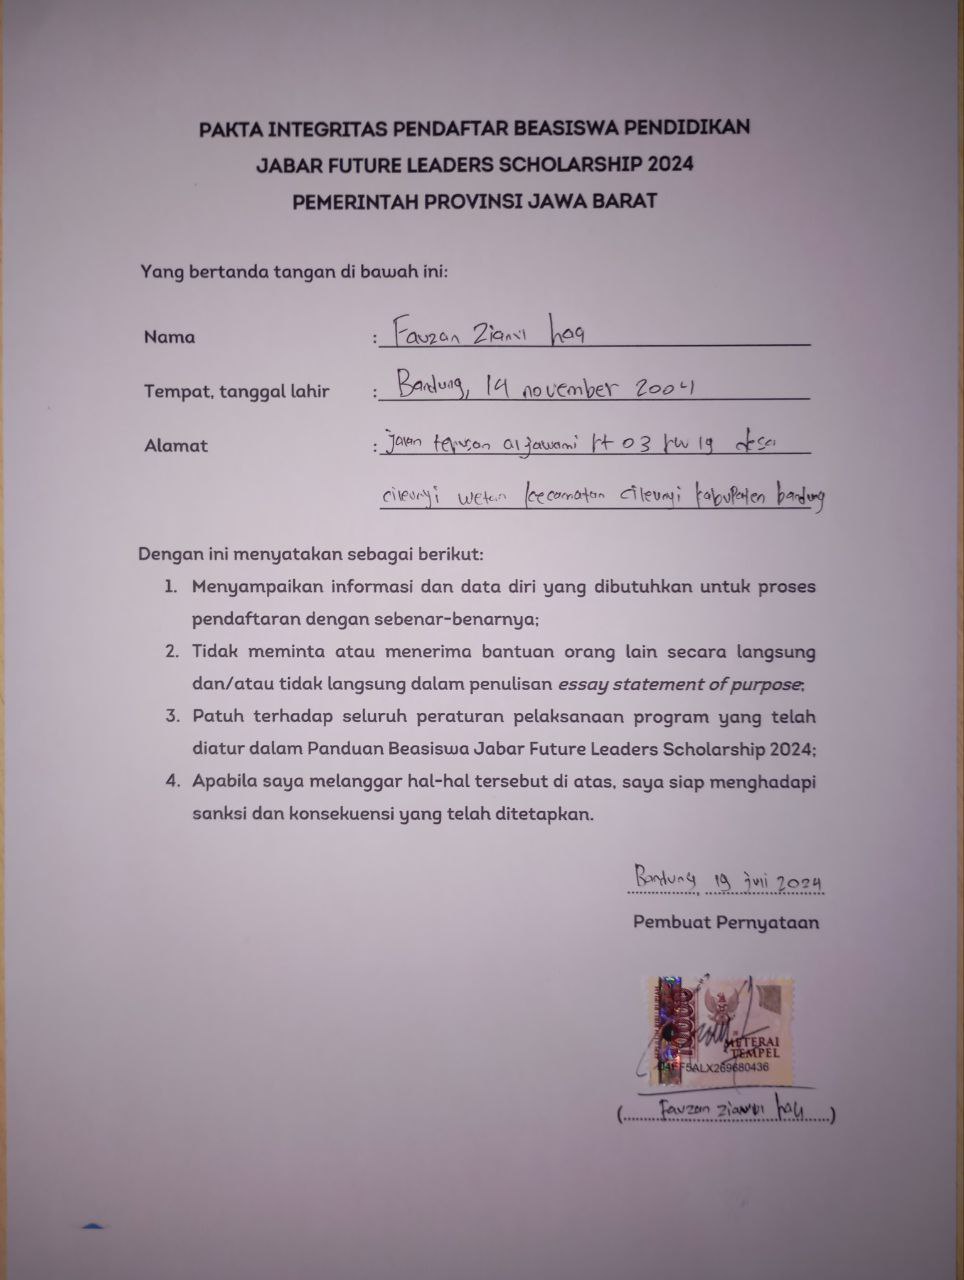 PAKTA INTEGRITAS PENDAFTAR BEASISWA PENDIDIKAN
JABAR FUTURE LEADERS SCHOLARSHIP 2024
PEMERINTAH PROVINSI JAWA BARAT
Yang bertanda tangan di bawah ini:
Nama : Fauzan Zianvi haq
Tempat, tanggal lahir : Bandung, 14 november 2004
Alamat : jalan terusan aljawami rt 03 rw 19 desa
cileunyi wetan kecamatan cileunyi kabupaten bandung
Dengan ini menyatakan sebagai berikut:
1. Menyampaikan informasi dan data diri yang dibutuhkan untuk proses
pendaftaran dengan sebenar-benarnya;
2. Tidak meminta atau menerima bantuan orang lain secara langsung
dan/atau tidak langsung dalam penulisan essay statement of purpose;
3. Patuh terhadap seluruh peraturan pelaksanaan program yang telah
diatur dalam Panduan Beasiswa Jabar Future Leaders Scholarship 2024;
4. Apabila saya melanggar hal-hal tersebut di atas, saya siap menghadapi
sanksi dan konsekuensi yang telah ditetapkan.
Bandung, 19 juli 2024
Pembuat Pernyataan
10000
METERAI
TEMPEL
(Fauzan Zianvi haq)